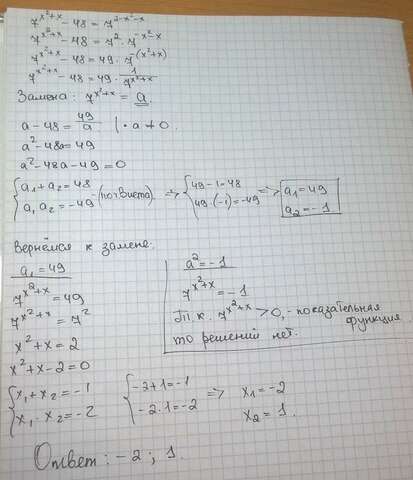 7^(x²+x) - 48 = 7^(2-x²-x)
7^(x²+x) - 48 = 7² · 7^(-x²-x)
7^(x²+x) - 48 = 49 · 7^(-(x²+x))
7^(x²+x) - 48 = 49 · 1/7^(x²+x)
Замена: 7^(x²+x) = a.
a - 48 = 49/a | · a ≠ 0.
a² - 48a = 49
a² - 48a - 49 = 0
{ a₁ + a₂ = 48
{ a₁ a₂ = -49 (по т Виета) => { 49 - 1 = 48
{ 49 · (-1) = -49 => a₁ = 49
a₂ = -1
Вернёмся к замене:
a₁ = 49
7^(x²+x) = 49
7^(x²+x) = 7²
x² + x = 2
x² + x - 2 = 0
a² = -1
7^(x²+x) = -1
Т.к. 7^(x²+x) > 0, - показательная
функция
то решений нет.
{ x₁ + x₂ = -1
{ x₁ · x₂ = -2
{ -2 + 1 = -1
{ -2 · 1 = -2 => x₁ = -2
x₂ = 1.
Ответ: -2; 1.